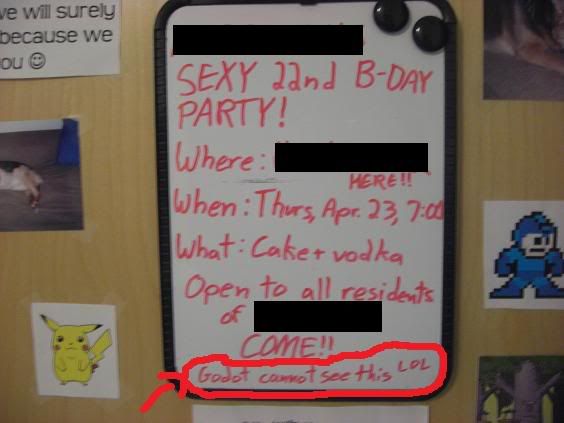 we will surely
because we
ou ☺
SEXY 22nd B-DAY
PARTY!
Where:
HERE!!
When: Thurs, Apr. 23, 7:00
What: Cake + vodka
Open to all residents
of
COME!!
Godot cannot see this LOL